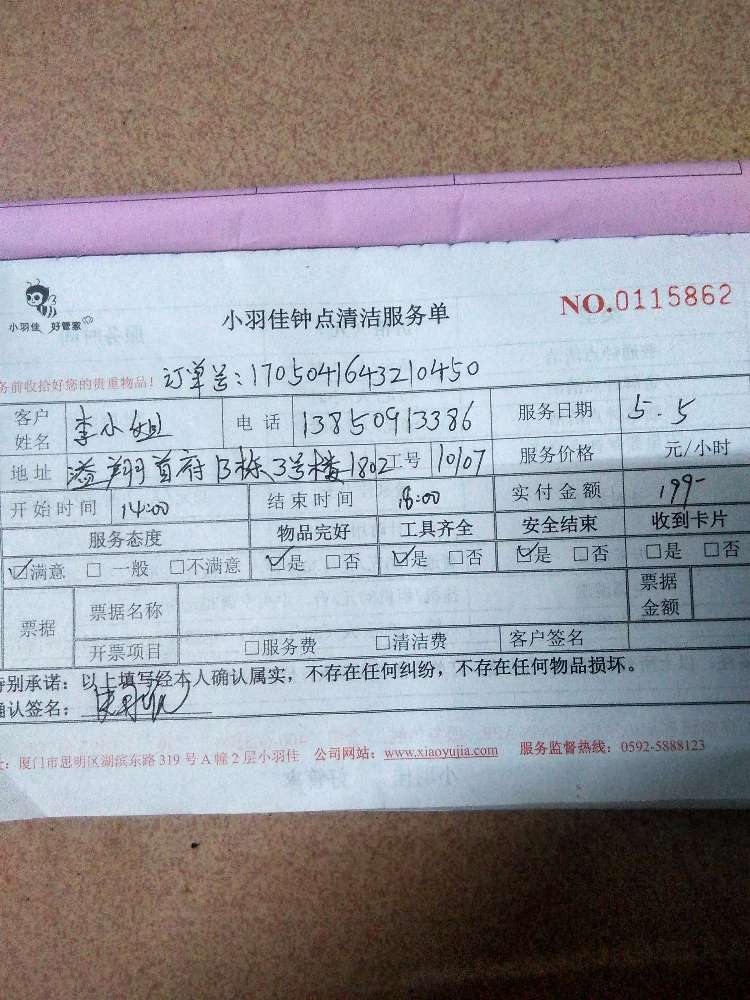 小羽佳 好管家
小羽佳钟点清洁服务单
NO.0115862
务前收拾好您的贵重物品! 订单号:1705041643210450
客户姓名 李小姐 电话 13850913386 服务日期 5.5
地址 溢翔首府B栋3号楼1802 工号 10107 服务价格 元/小时
开始时间 14:00 结束时间 18:00 实付金额 199-
服务态度 物品完好 工具齐全 安全结束 收到卡片
☑满意 □一般 □不满意 ☑是 □否 ☑是 □否 ☑是 □否 □是 □否
票据 票据名称 票据金额
开票项目 □服务费 □清洁费 客户签名
特别承诺:以上填写经本人确认属实,不存在任何纠纷,不存在任何物品损坏。
确认签名:
址:厦门市思明区湖滨东路319号A幢2层小羽佳 公司网站:www.xiaoyujia.com 服务监督热线:0592-5888123